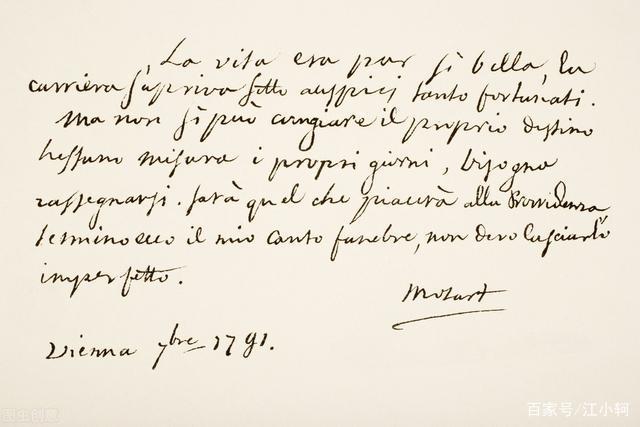 La vita era pur sì bella, la
carriera s'apriva sotto auspici tanto fortunati.
Ma non si può cangiare il proprio destino
Nessuno misura i propri giorni, bisogna
rassegnarsi. sarà quel che piacerà alla Providenza
termino ecco il mio canto funebre, non devo lasciarlo
imperfetto.
Mozart
Vienna 7bre 1791.
图虫创意
百家号/江小轲